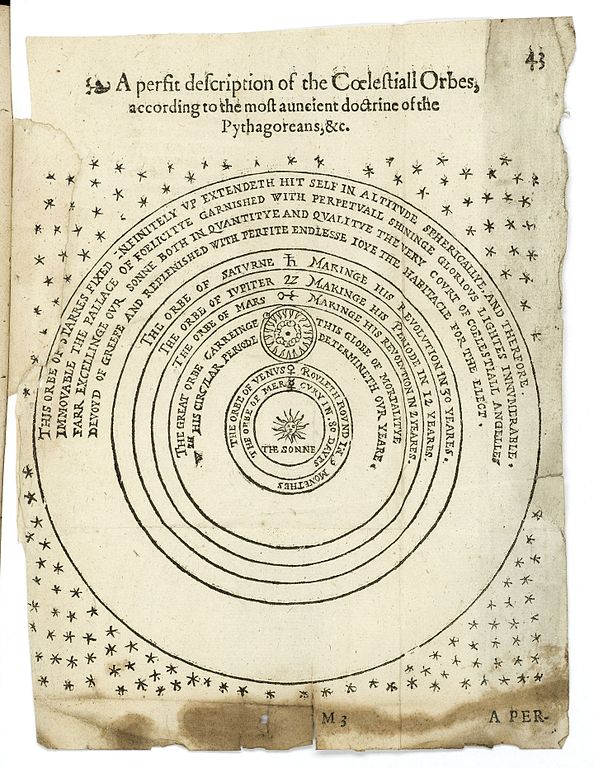 43
A perfit deſcription of the Cœleſtiall Orbes,
according to the moſt auncient doctrine of the
Pythagoreans, &c.
THIS ORBE OF STARRES FIXED INFINITELY VP EXTENDETH HIT SELF IN ALTITVDE SPHERICALLYE, AND THERFORE
IMMOVABLE THE PALLACE OF FOELICITYE GARNISHED WITH PERPETVALL SHININGE GLORIOVS LIGHTES INNVMERABLE.
FARR EXCELLINGE OVR SONNE BOTH IN QVANTITYE AND QVALITYE THE VERY COVRT OF COELESTIALL ANGELLES
DEVOYD OF GREEFE AND REPLENISHED WITH PERFITE ENDLESSE IOYE THE HABITACLE FOR THE ELECT.
THE ORBE OF SATVRNE ♄ MAKINGE HIS REVOLVTION IN 30 YEARES.
THE ORBE OF IVPITER ♃ MAKINGE HIS PERIODE IN 12 YEARES.
THE ORBE OF MARS ♂ MAKINGE HIS REVOLVTION IN 2 YEARES.
THE GREAT ORBE CARREINGE THIS GLOBE OF MORTALITYE
HIS CIRCVLAR PERIODE DETERMINETH OVR YEARE.
THE ORBE OF VENVS ♀ ROVLETH ROVND IN 9 MONETHES
THE ORBE OF MERCVRY IN 80 DAYES
THE SONNE
M 3 A PER-